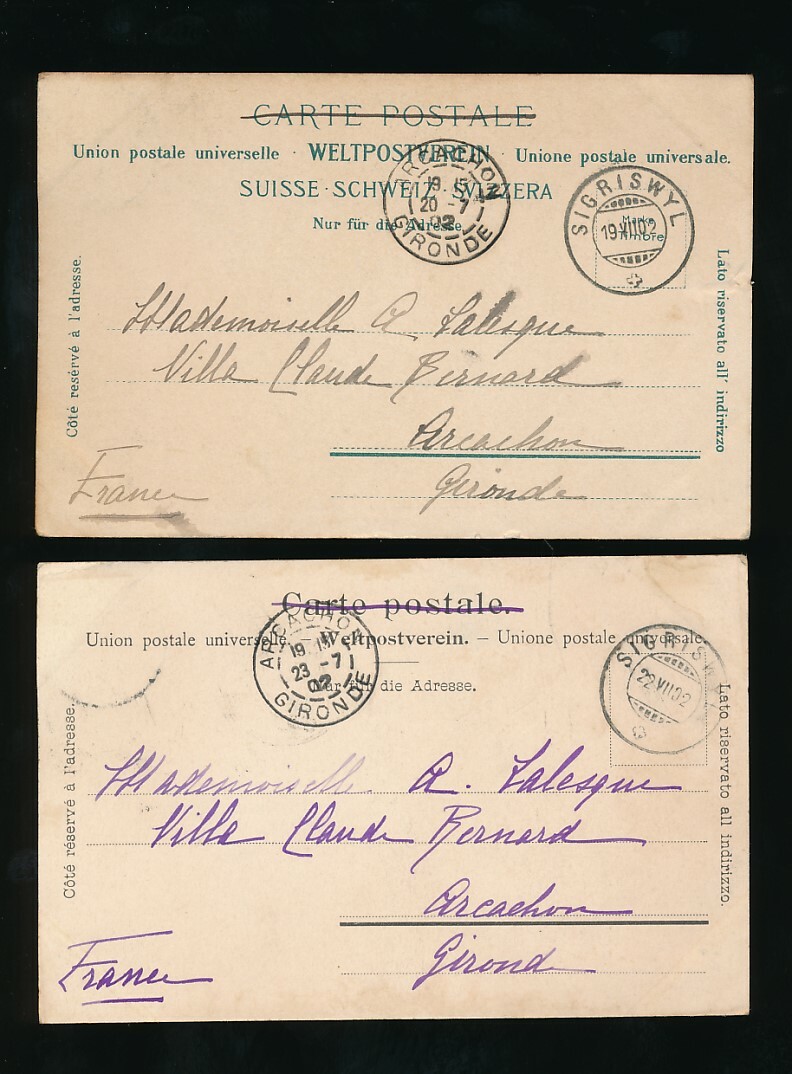 CARTE POSTALE
Union postale universelle · WELTPOSTVEREIN · Unione postale universale.
SUISSE · SCHWEIZ · SVIZZERA
Nur für die Adresse.
ARCACHON
19 15
20 -7
02
GIRONDE
SIGRISWYL
Marke
Timbre
19 VII 02
Côté resérvé à l'adresse.
Lato riservato all' indirizzo
Mademoiselle A. Lalesque
Villa Claude Bernard
Arcachon
Gironde
France
Carte postale.
Union postale universelle. — Weltpostverein. — Unione postale universale.
Nur für die Adresse.
ARCACHON
19 15
23 -7
02
GIRONDE
SIGRISW
22 VII 02
Côté réservé à l'adresse.
Lato riservato all indirizzo.
Mademoiselle A. Lalesque
Villa Claude Bernard
Arcachon
Gironde
France